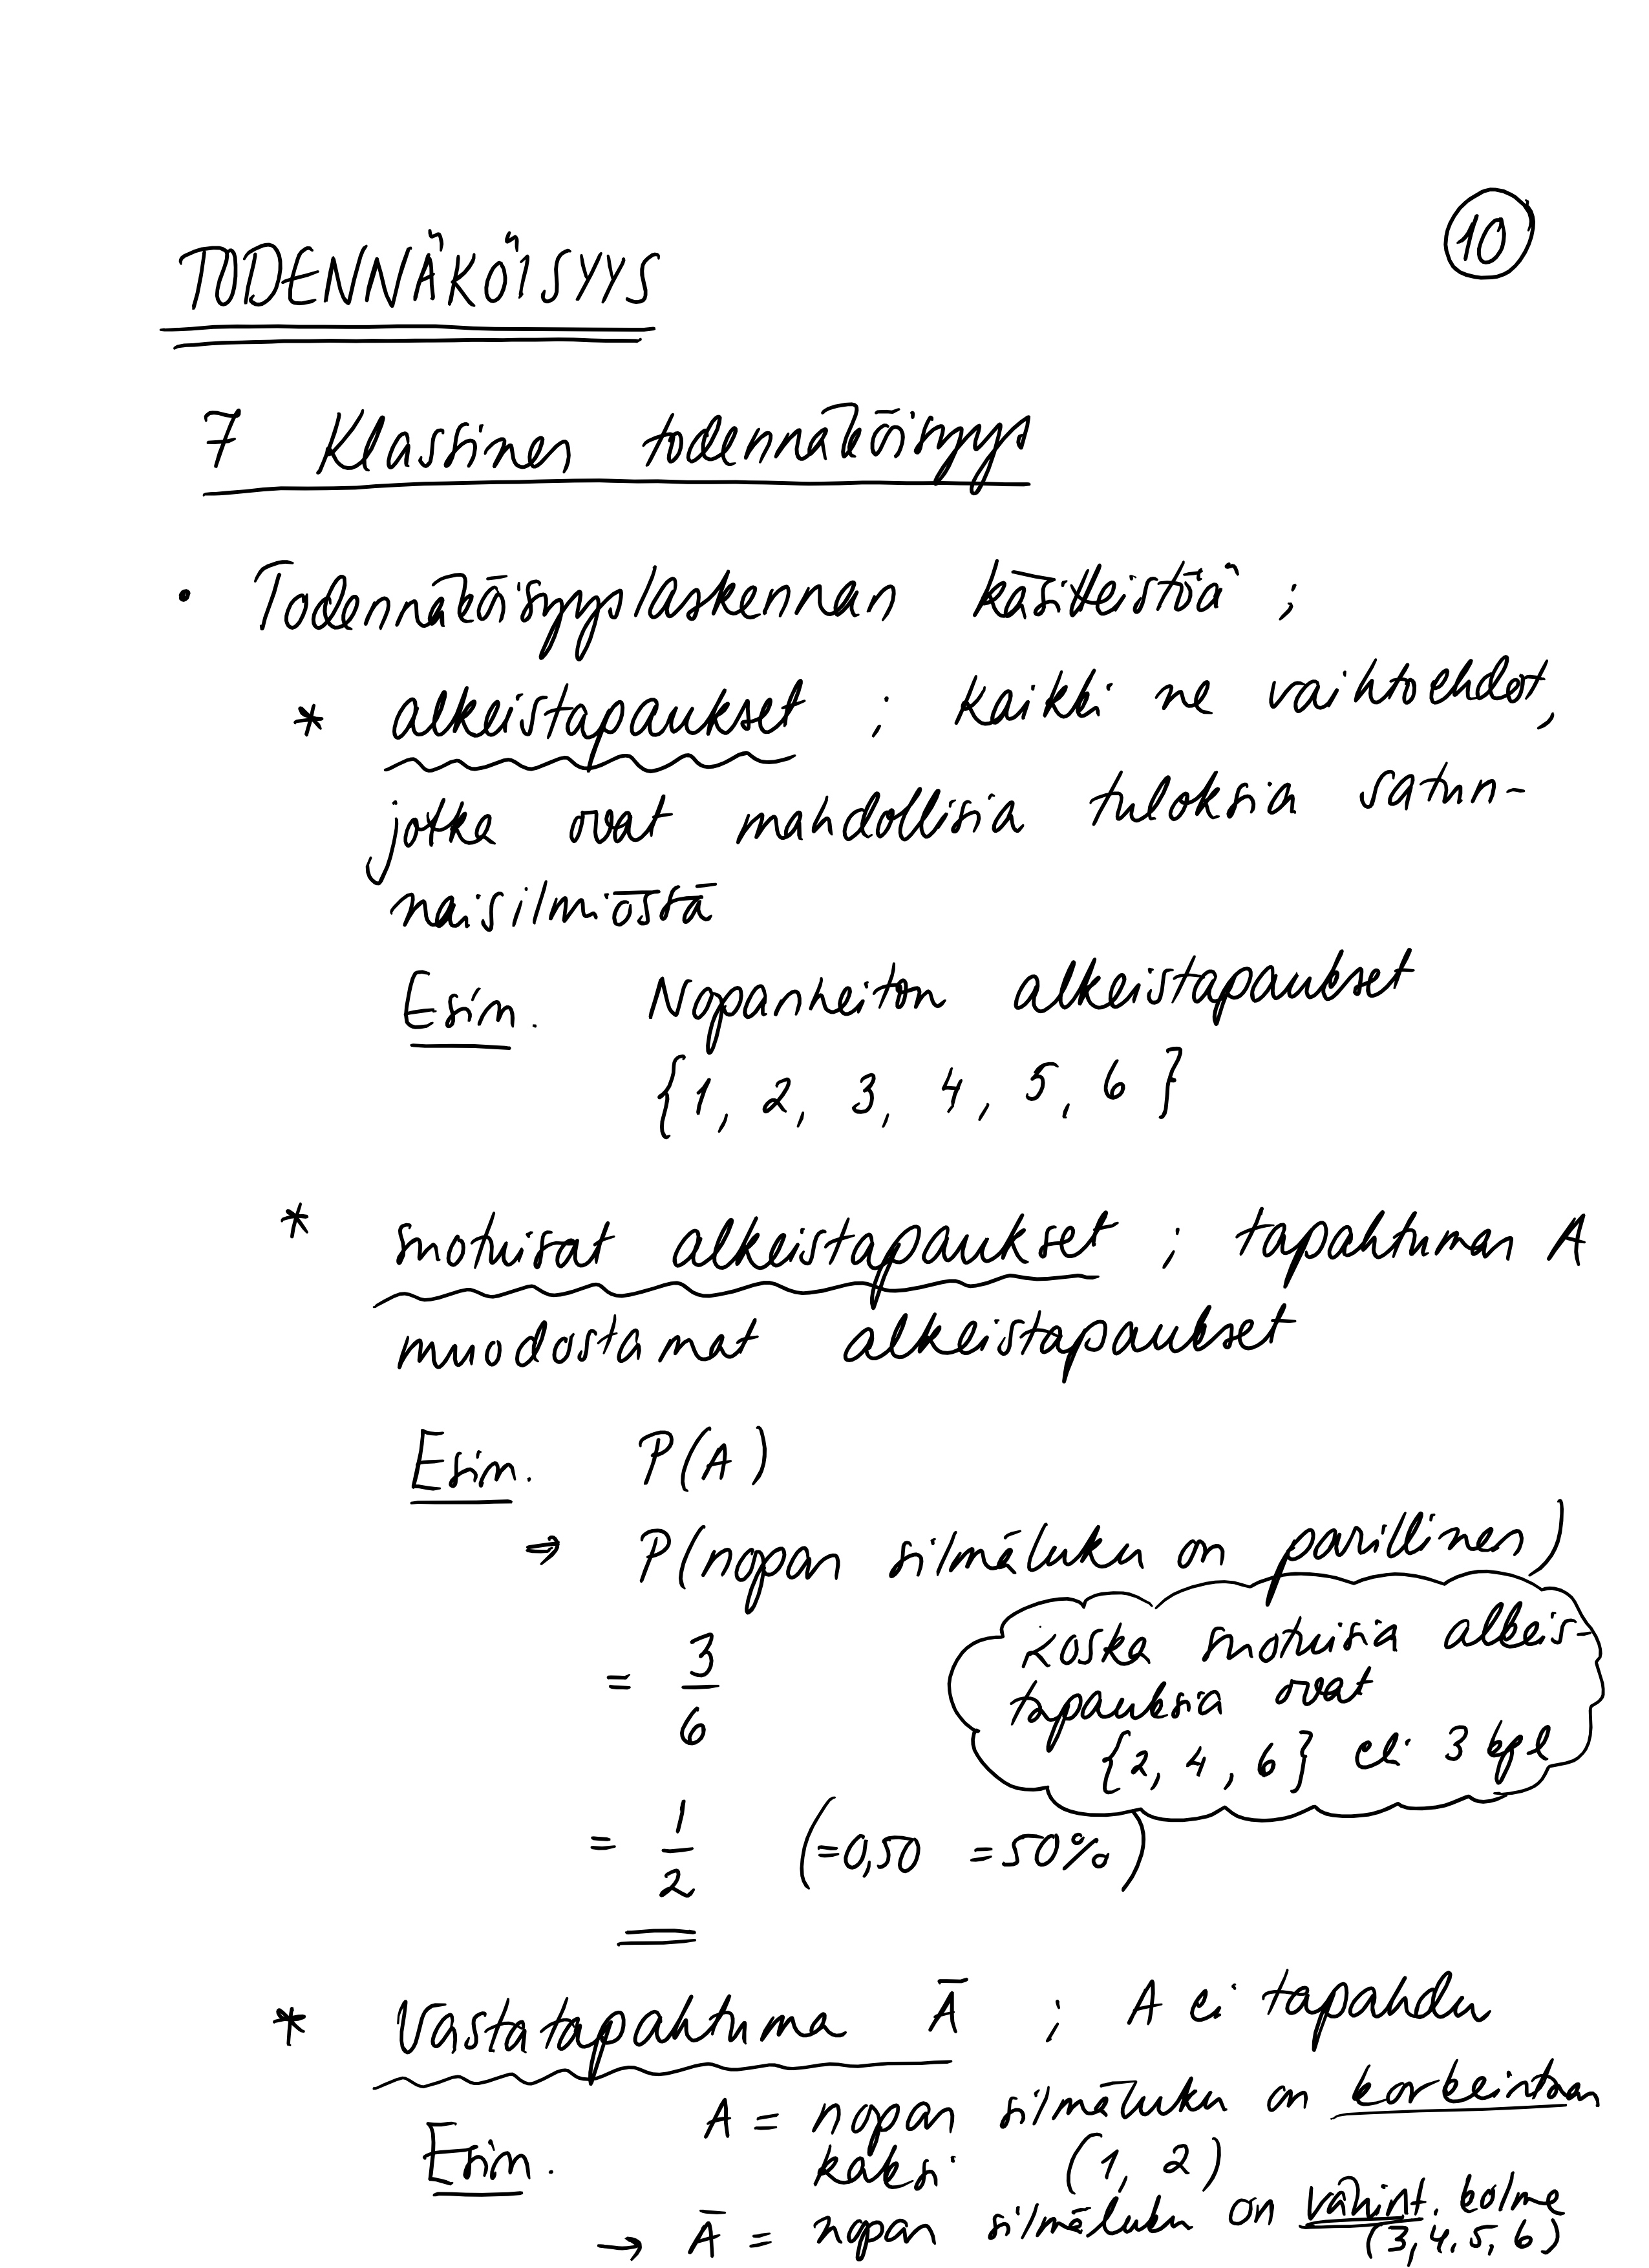 10
TODENNÄKÖISYYS
7 Klassinen todennäköisyys
• Todennäköisyyslaskennan käsitteistöä ;
* alkeistapaukset ; kaikki ne vaihtoehdot,
jotka ovat mahdollisia tuloksia satun-
naisilmiössä
Esim. Nopanheiton alkeistapaukset
{1, 2, 3, 4, 5, 6}
* suotuisat alkeistapaukset ; tapahtuman A
muodostamat alkeistapaukset
Esim. P(A)
→ P(nopan silmäluku on parillinen)
= 3/6
koska suotuisia alkeis-
tapauksia ovat
{2, 4, 6} eli 3 kpl
= 1/2 (=0,50 =50%)
* Vastatapahtuma Ā ; A ei tapahdu
Esim. A = nopan silmäluku on korkeintaan
kaksi (1, 2)
→ Ā = nopan silmäluku on vähint. kolme
(3, 4, 5, 6)